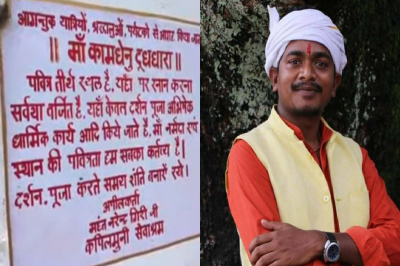 आगन्तुक यात्रियों, श्रध्दालुओं, पर्यटको से आग्रह किया जाता
॥ माँ कामधेनु दूधधारा ॥
पवित्र तीर्थ स्थल है, यहाँ पर स्नान करना
सर्वथा वर्जित है, यहाँ केवल दर्शन, पूजा अभिषेक
धार्मिक कार्य आदि किये जाते है, माँ नर्मदा एवं
स्थान की पवित्रता हम सबका कर्तव्य है।
दर्शन, पूजा करते समय शांति बनाऐ रखे।
अपीलकर्ता
महंत नरेन्द्र गिरी जी
कपिलमुनी सेवाश्रम